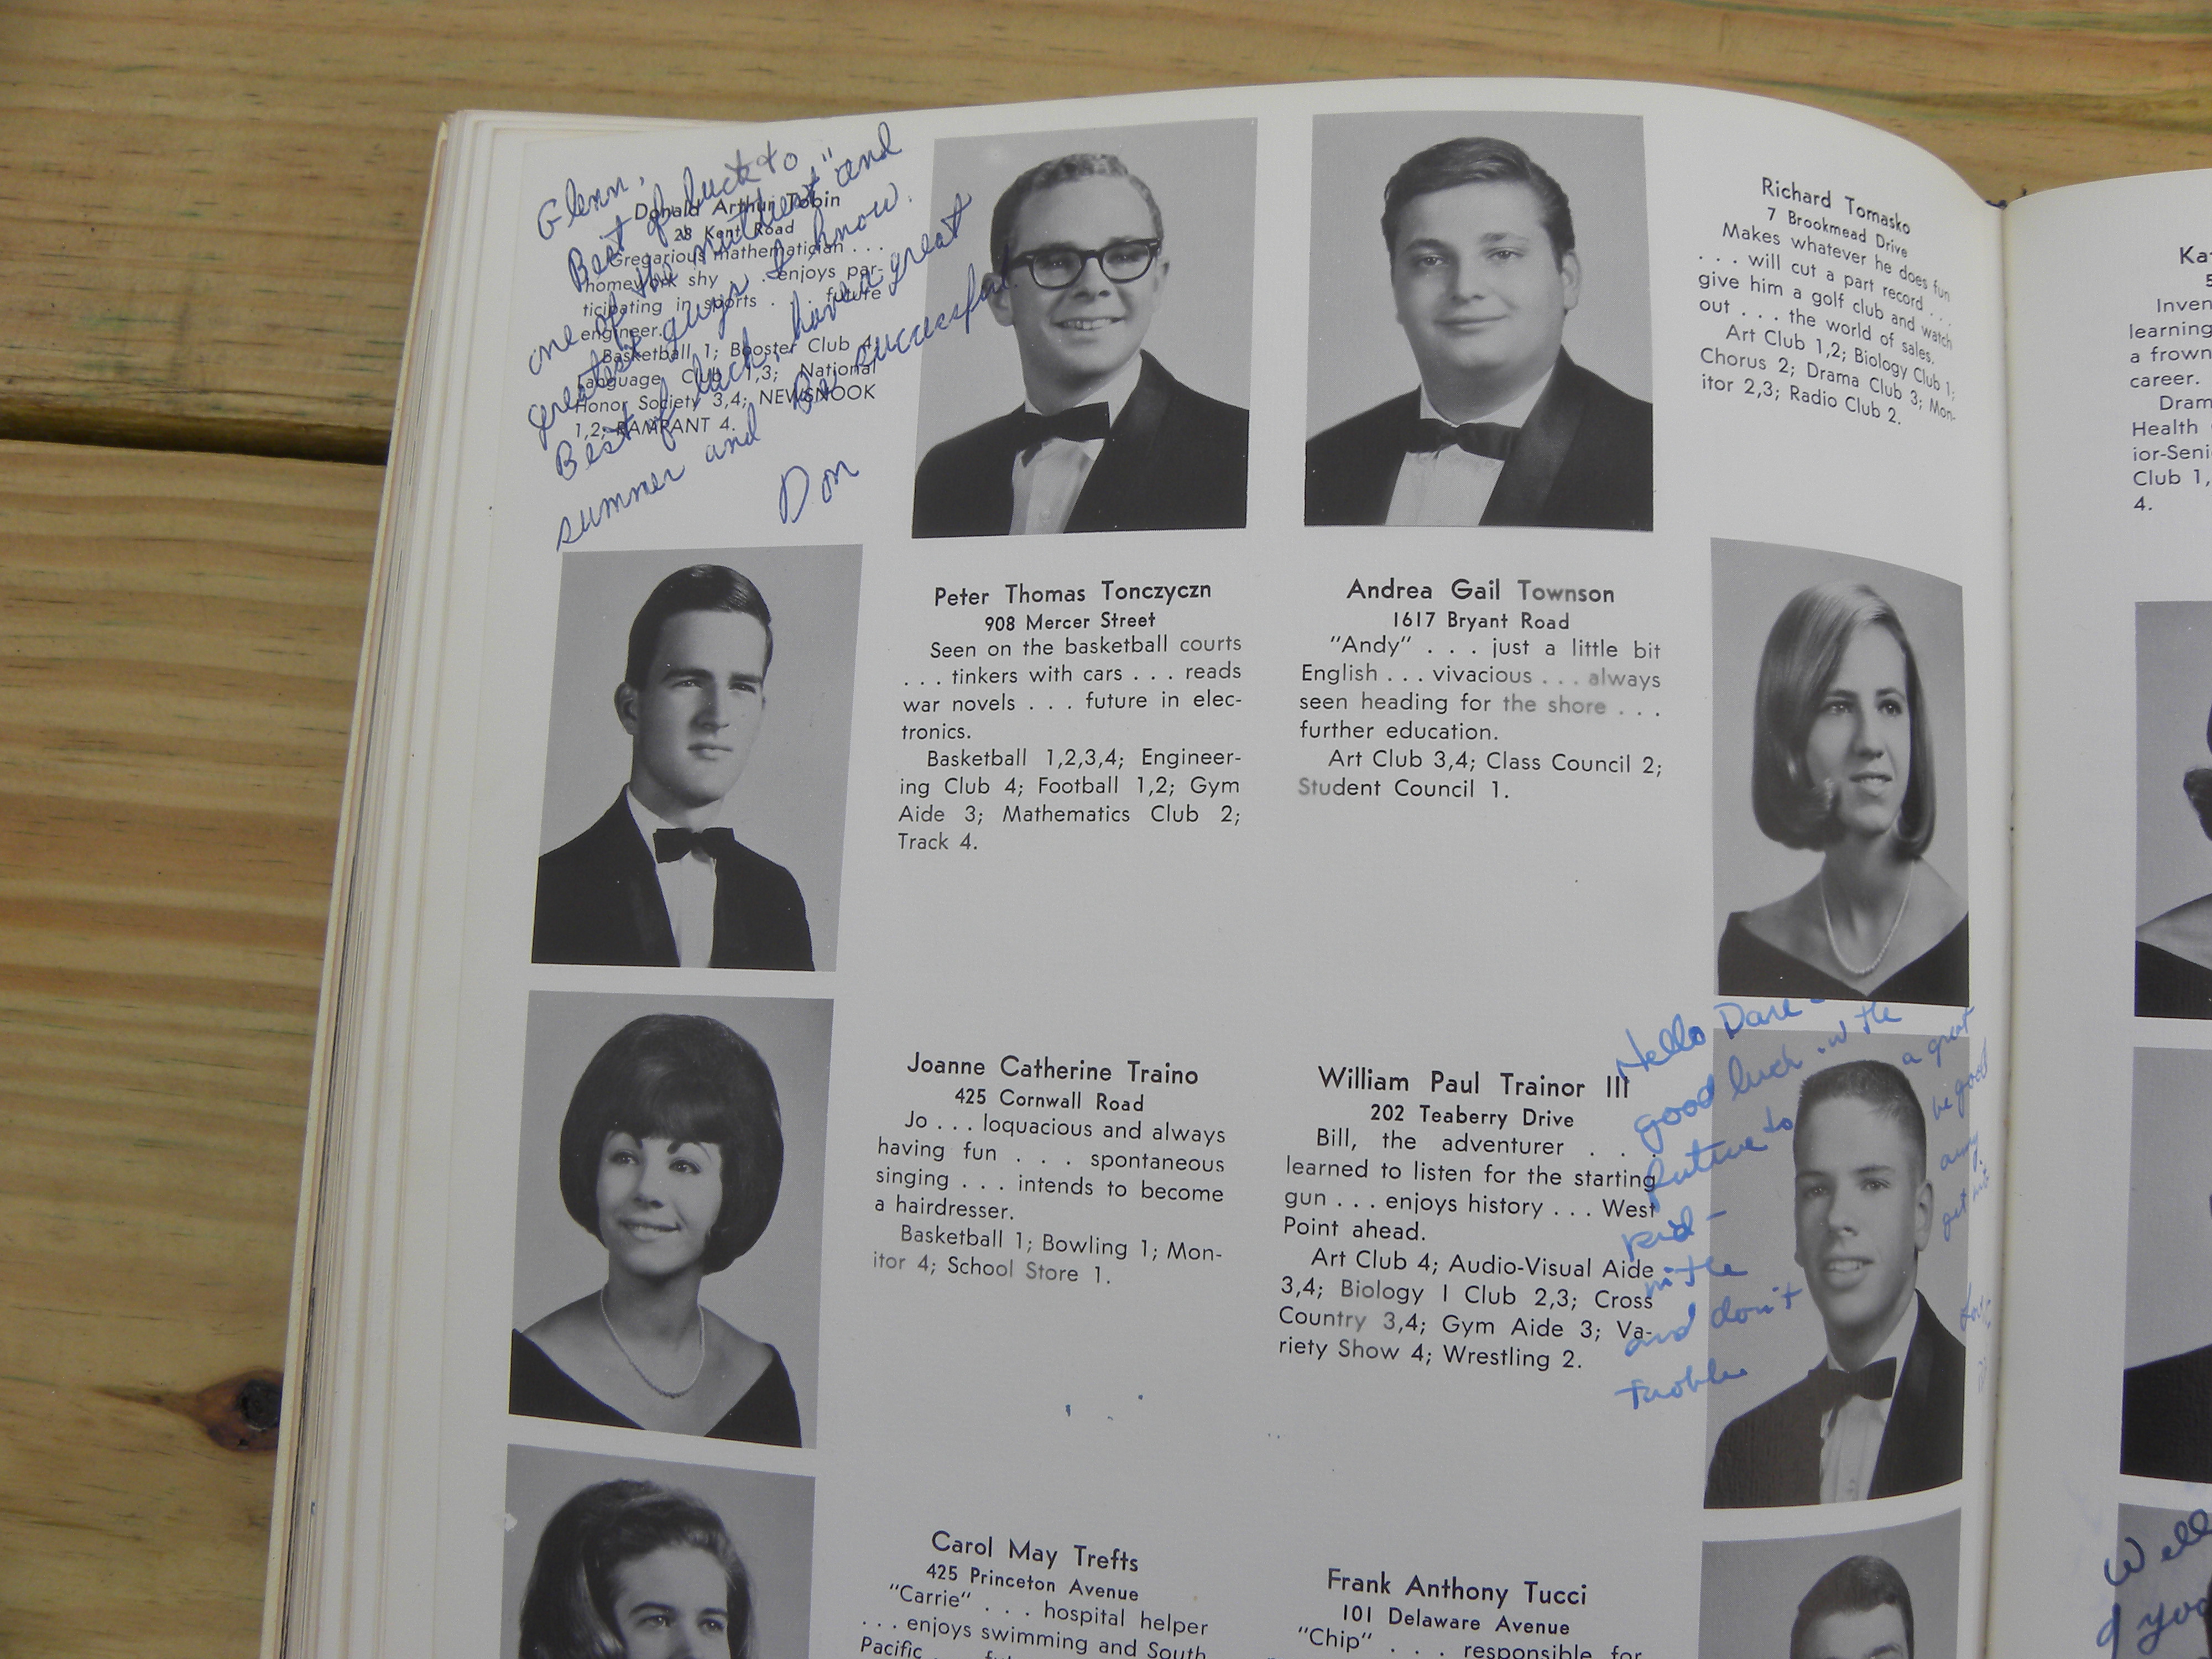 Glenn,
Best of luck to
one of the "nuttiest" and
greatest guys I know.
Best of luck, have a great
summer and be successful.
Don
Donald Arthur Tobin
28 Kent Road
Gregarious mathematician . . .
homework shy . . . enjoys par-
ticipating in sports . . . future
engineer.
Basketball 1; Booster Club 4;
Language Club 1,3; National
Honor Society 3,4; NEWSNOOK
1,2; RAMPANT 4.
Richard Tomasko
7 Brookmead Drive
Makes whatever he does fun
. . . will cut a part record . . .
give him a golf club and watch
out . . . the world of sales.
Art Club 1,2; Biology Club 1;
Chorus 2; Drama Club 3; Mon-
itor 2,3; Radio Club 2.
Peter Thomas Tonczyczn
908 Mercer Street
Seen on the basketball courts
. . . tinkers with cars . . . reads
war novels . . . future in elec-
tronics.
Basketball 1,2,3,4; Engineer-
ing Club 4; Football 1,2; Gym
Aide 3; Mathematics Club 2;
Track 4.
Andrea Gail Townson
1617 Bryant Road
"Andy" . . . just a little bit
English . . . vivacious . . . always
seen heading for the shore . . .
further education.
Art Club 3,4; Class Council 2;
Student Council 1.
Joanne Catherine Traino
425 Cornwall Road
Jo . . . loquacious and always
having fun . . . spontaneous
singing . . . intends to become
a hairdresser.
Basketball 1; Bowling 1; Mon-
itor 4; School Store 1.
William Paul Trainor III
202 Teaberry Drive
Bill, the adventurer . . .
learned to listen for the starting
gun . . . enjoys history . . . West
Point ahead.
Art Club 4; Audio-Visual Aide
3,4; Biology I Club 2,3; Cross
Country 3,4; Gym Aide 3; Va-
riety Show 4; Wrestling 2.
Hello Dave -
good luck in the
future to a great
kid - be good
in the army
and don't get into
trouble
Carol May Trefts
425 Princeton Avenue
"Carrie" . . . hospital helper
. . . enjoys swimming and South
Pacific
Frank Anthony Tucci
101 Delaware Avenue
"Chip" . . . responsible for
Ka
5
Inven
learning
a frown
career.
Dram
Health
ior-Seni
Club 1,
4.
Well